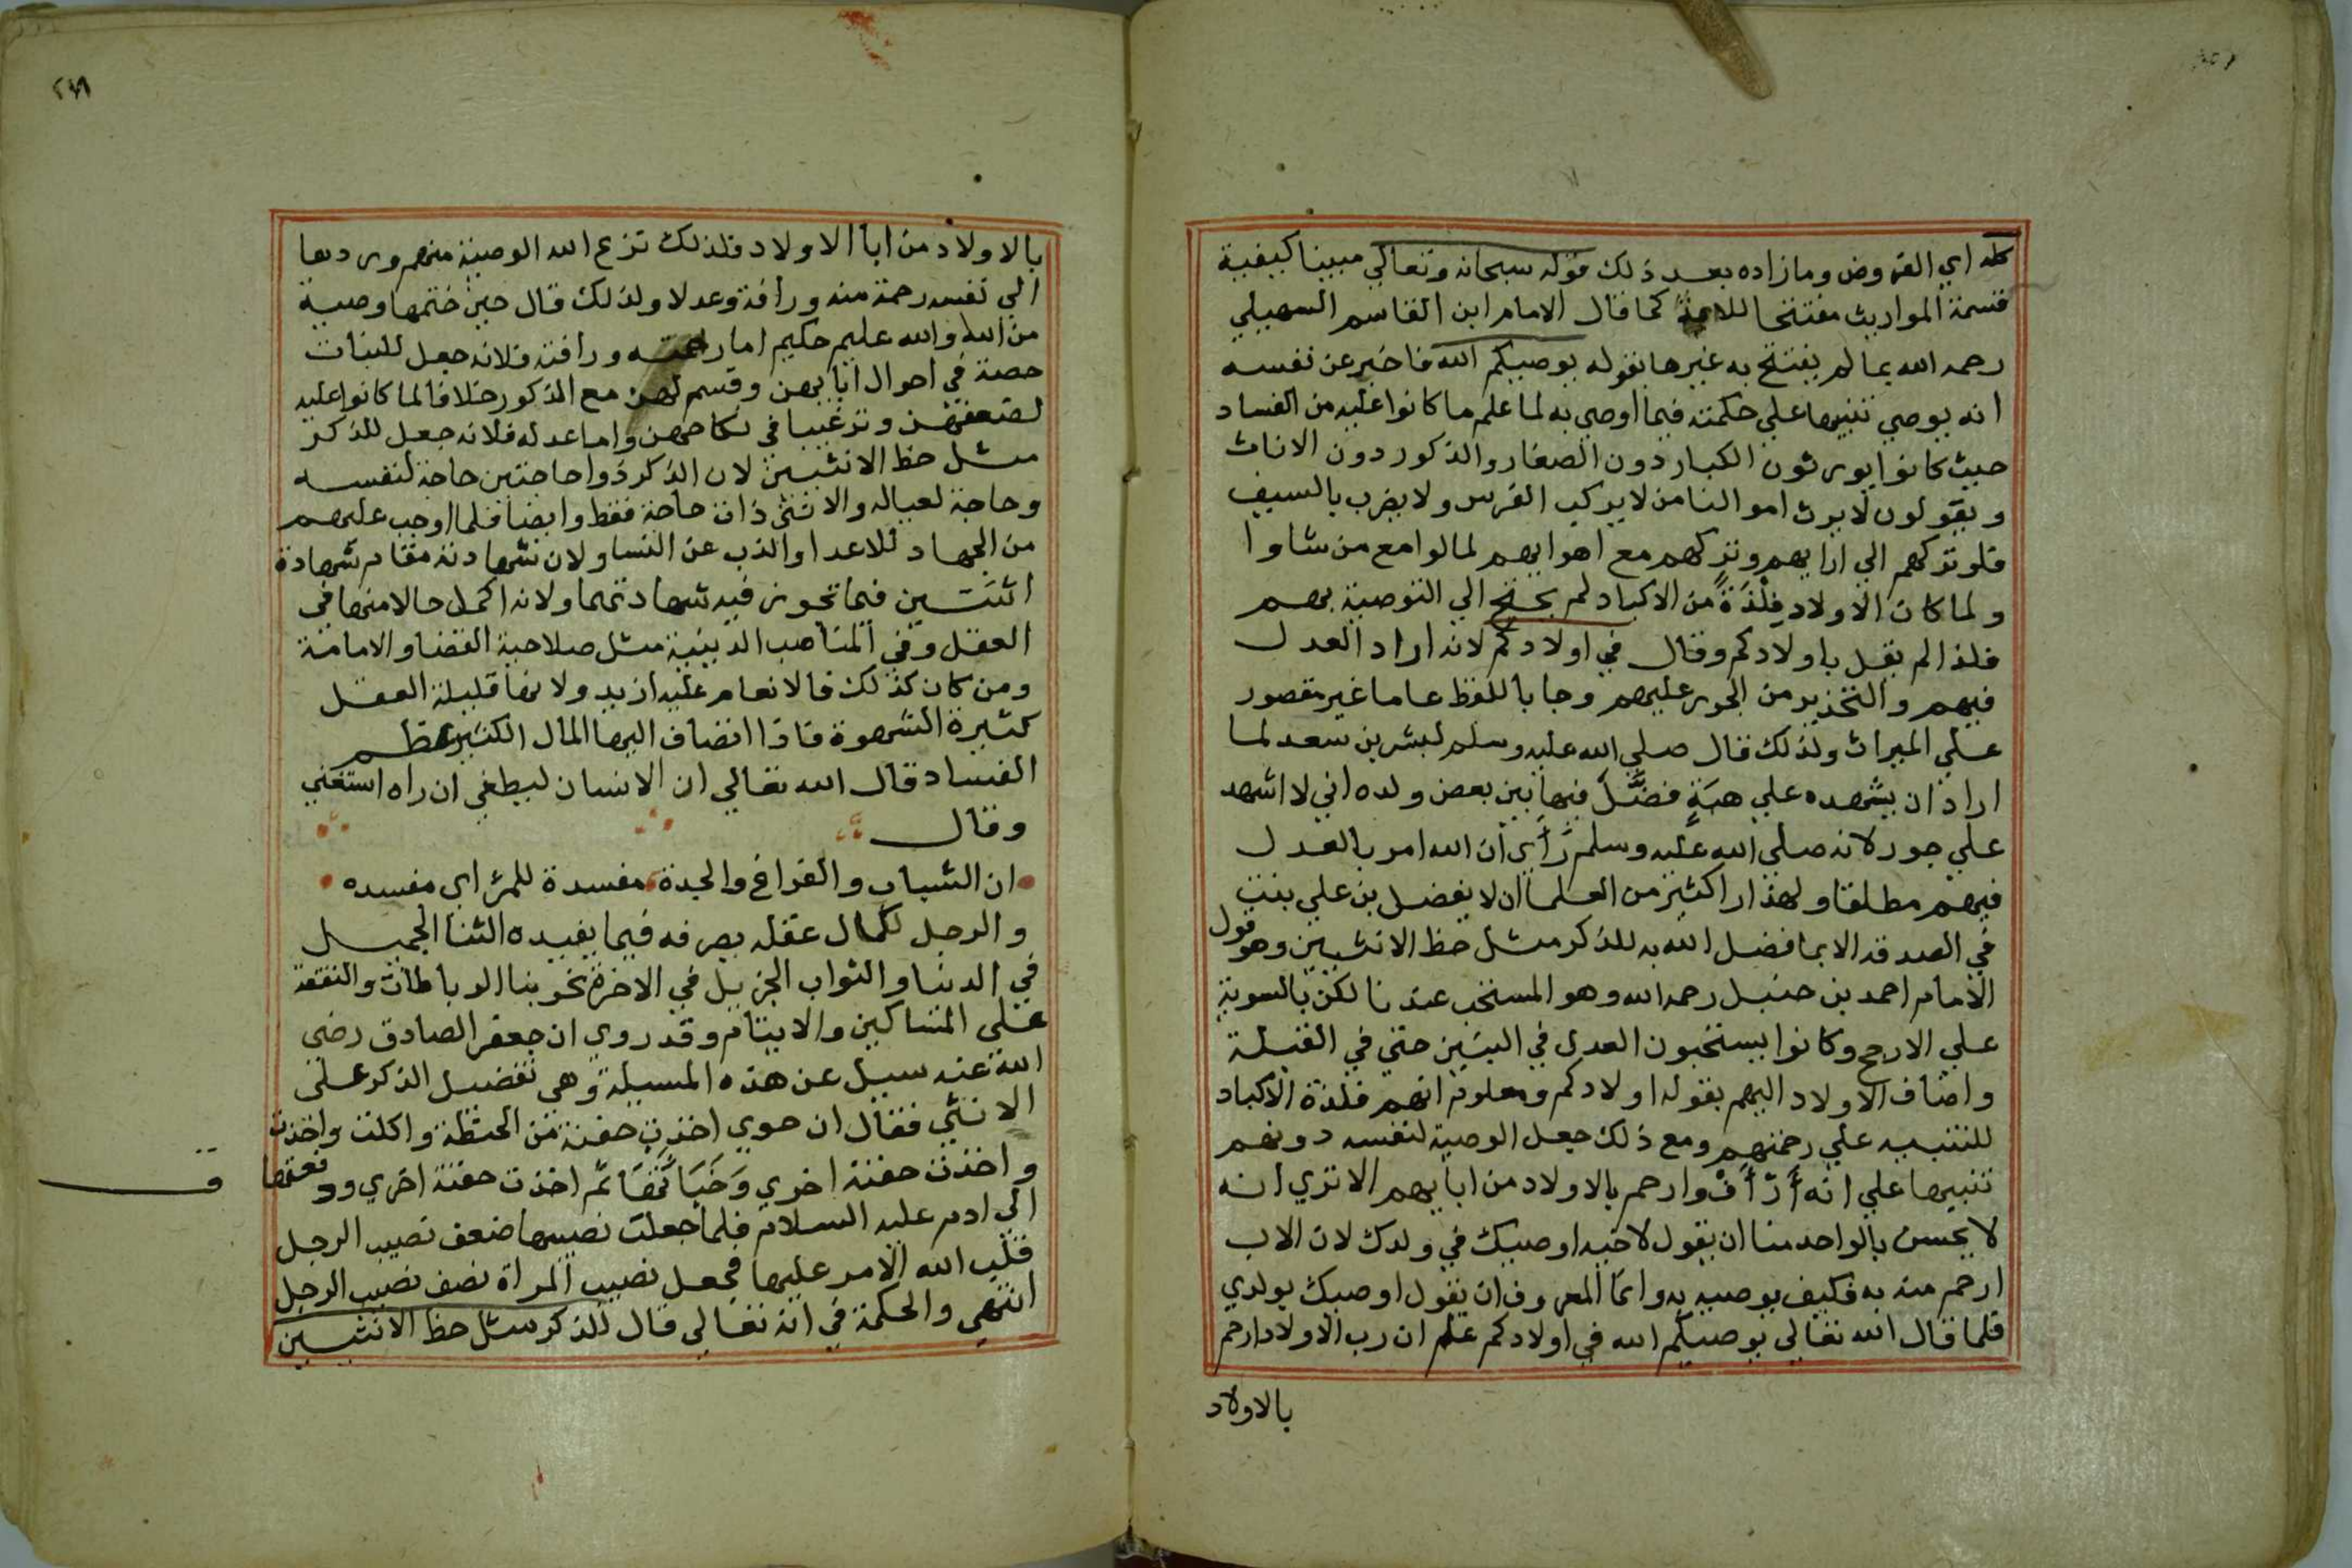 كله اي الفروض وما زاده بعد ذلك قوله سبحانه وتعالي مبينا كيفية
قسمة المواريث مفتتحا للاية كما قال الامام ابن القاسم السهيلي
رحمه الله بما لم يفتتح به غيرها بقوله يوصيكم الله فاخبر عن نفسه
انه يوصي تنبيها علي حكمته فيما اوصي به لما علم ما كانوا عليه من الفساد
حيث كانوا يورثون الكبار دون الصغار والذكور دون الاناث
ويقولون لا يرث اموالنا من لا يركب الفرس ولا يضرب بالسيف
فلو تركهم الي ارايهم وتركهم مع اهوايهم لمالوا مع من شاوا
ولما كان الاولاد فِلْذَةً من الاكباد لم يحتج الي التوصية بهم
فلذا لم يقل باولادكم وقال في اولادكم لانه اراد العدل
فيهم والتحذير من الجور عليهم وجا باللفظ عاما غير مقصور
علي الميراث ولذلك قال صلي الله عليه وسلم لبشر بن سعد لما
اراد ان يشهده علي هبَةٍ فضَّلَ فيها بين بعض ولده اني لا اشهد
علي جور لانه صلي الله عليه وسلم رَأَي ان الله امر بالعدل
فيهم مطلقا ولهذا را كثير من العلما ان لا يفضل بن علي بنت
في الصدقه الا بما فضل الله به للذكر مثل حظ الانثيين وهو قول
الامام احمد بن حنبل رحمه الله وهو المستحب عندنا لكن بالسوية
علي الارجح وكانوا يستحبون العدل في البنين حتي في القبلة
واضاف الاولاد اليهم بقوله اولادكم ومعلوم انهم فلذة الاكباد
للتنبيه علي رحمتهم ومع ذلك جعل الوصية لنفسه دونهم
تنبيها علي انه أَرْأَفُ وارحم بالاولاد من ابايهم الا تري انه
لا يحسن بالواحد منا ان يقول لاخيه اوصيك في ولدك لان الاب
ارحم منه به فكيف يوصيه به وانما المعروف ان يقول اوصيك بولدي
فلما قال الله تعالي يوصيكم الله في اولادكم علم ان رب الاولاد ارحم
بالاولاد
بالاولاد من ابا الاولاد فلذلك نزع الله الوصية منهم وردها
الي نفسه رحمة منه ورافة وعدلا ولذلك قال حين ختمها وصية
من الله والله عليم حكيم اما رحمته ورافته فلانه جعل للبنات
حصة في احوال ابايهن وقسم لهن مع الذكور خلافا لما كانوا عليه
لضعفهن وترغيبا في نكاحهن واما عدله فلانه جعل للذكر
مثل حظ الانثيين لان الذكر ذوا حاجتين حاجة لنفسه
وحاجة لعياله والانثي ذات حاجة فقط وايضا فلما اوجب عليهم
من الجهاد للاعدا والذب عن النسا ولان شهادته مقام شهادة
اثنتين فيما تجوز فيه شهادتهما ولانه اكمل حالا منها في
العقل وفي المناصب الدينية مثل صلاحية القضا والامامة
ومن كان كذلك فالانعام عليه ازيد ولانها قليلة العقل
كثيرة الشهوة فاذا انضاف اليها المال الكثير عظم
الفساد قال الله تعالي ان الانسان ليطغي ان راه استغني
وقال
ان الشباب والفراغ والجدة مفسدة للمرئ اي مفسده
والرجل لكمال عقله يصرفه فيما يفيده الثنا الجميل
في الدنيا والثواب الجزيل في الاخرة نحو بنا الرباطات والنفقة
علي المساكين والايتام وقد روي ان جعفر الصادق رضي
الله عنه سيل عن هذه المسيلة وهي تفضيل الذكر علي
الانثي فقال ان حوي اخذت حفنة من الحنطة واكلت واخذت
واخذت حفنة اخري وَخَبَأَتْهَا ثم اخذت حفنة اخري ودفعتها
الي ادم عليه السلام فلما جعلت نصيبها ضعف نصيب الرجل
قلب الله الامر عليها فجعل نصيب المراة نصف نصيب الرجل
انتهي والحكمة في انه تعالي قال للذكر مثل حظ الانثيين